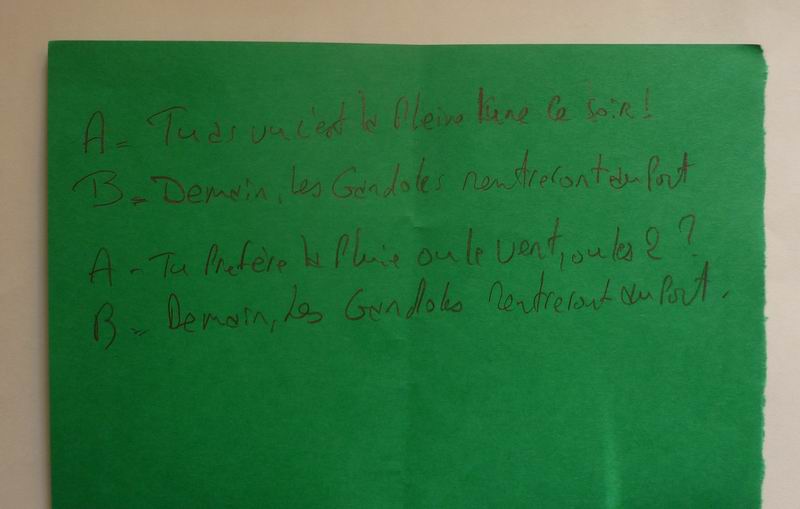 A = Tu as vu c'est la Pleine lune ce soir !
B = Demain, les Gondoles rentreront au Port
A - Tu Préfère la Pluie ou le vent, ou les 2 ?
B = Demain, les Gondoles rentreront au Port.